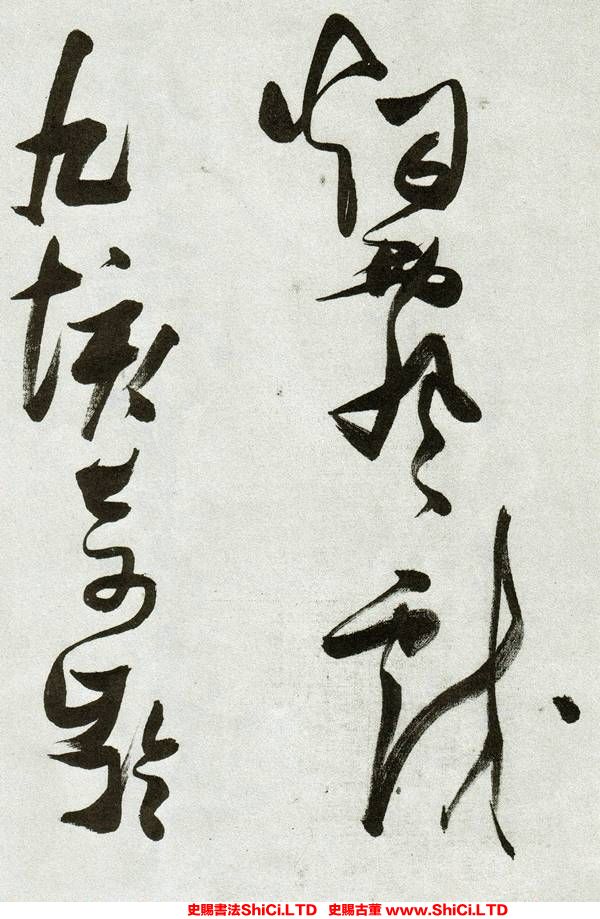 烟飄戲
九垓奇齡
史賜書法ShiCi.LTD 史賜古董 www.ShiCi.LTD